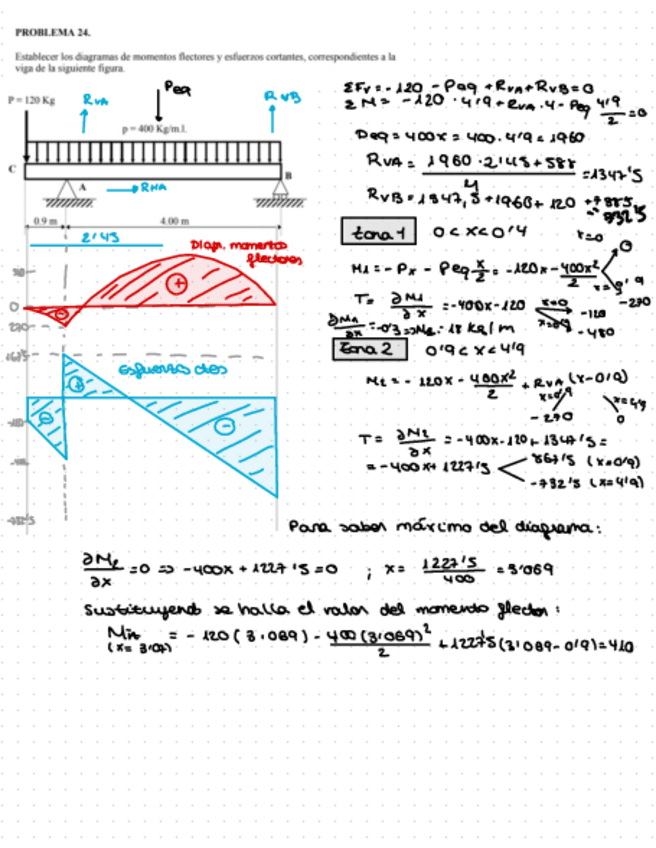 PROBLEMA 24.
Establecer los diagramas de momentos flectores y esfuerzos cortantes, correspondientes a la
viga de la siguiente figura.
P = 120 Kg
RVA
Peq
RVB
p = 400 Kg/m.l.
C
A
RHA
B
0.9 m
4.00 m
2'45
Diagr. momentos
flectores
+
0
-
270
Esfuerzos
+
-
-
ΣFv = -120 - Peq + RVA + RVB = 0
ΣM = -120 · 4'9 + RVA · 4 - Peq 4'9/2 = 0
Peq = 400x = 400 · 4'9 = 1960
RVA = 1960 · 2'45 + 588 / 4 = 1347'5
Zona 1 0 < x < 0'9
M1 = -Px - Peq x/2 = -120x - 400x²/2
x=0
0
-270
T = ∂M1/∂x = -400x - 120
x=0
-120
-480
Zona 2 0'9 < x < 4'9
M2 = -120x - 400x²/2 + RVA (x - 0'9)
x=0'9
x=4'9
-270
0
T = ∂M2/∂x = -400x - 120 + 1347'5 =
= -400x + 1227'5
867'5 (x=0'9)
-732'5 (x=4'9)
Para saber máximo del diagrama:
∂M2/∂x = 0 => -400x + 1227'5 = 0 ; x = 1227'5/400 = 3'069
Sustituyend se halla el valor del momendo flector:
(x = 3'07) = -120 (3'069) - 400 (3'069)²/2 + 1227'5 (3'069 - 0'9) = 410